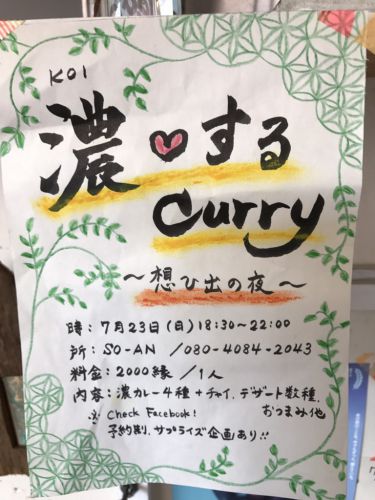 KOI
濃♥する
curry
〜想ひ出の夜〜
時：7月23日(日)18:30〜22:00
所：SO-AN /080-4084-2043
料金：2000縁 /1人
内容：濃カレー4種＋チャイ、デザート数種、
おつまみ他
※ Check Facebook!
予約割、サプライズ企画あり!!